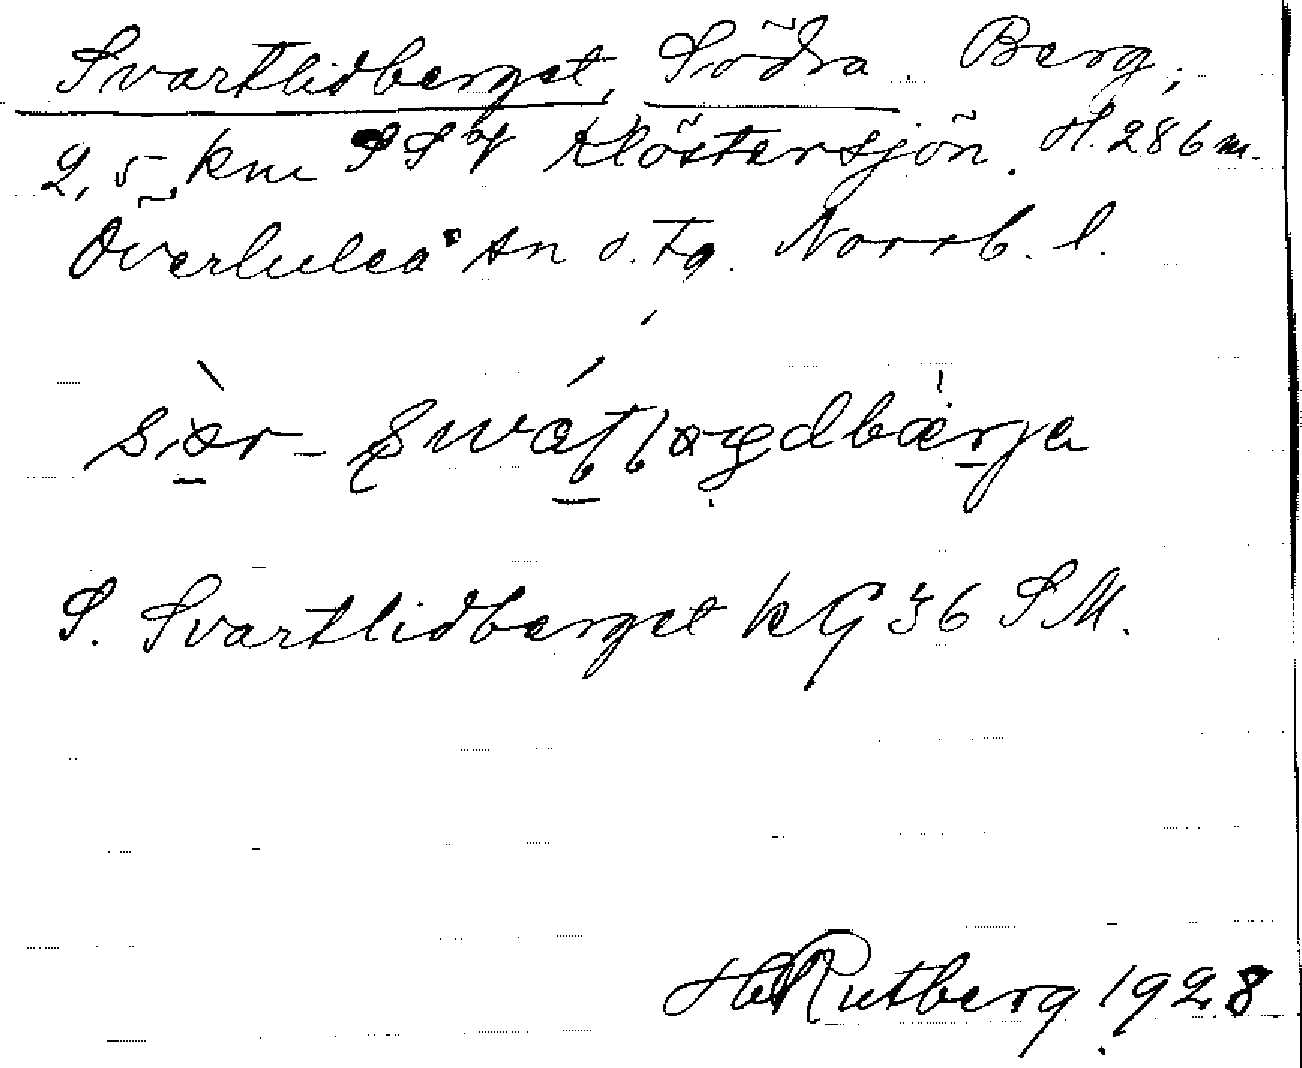 Svartlidberget, Södra. Berg,
2,5 km SSV Klöstersjön. H. 286 m.
Överluleå sn o. tg. Norrb. l.
S. Svartlidberget kG 36 SM.
HRutberg 1928